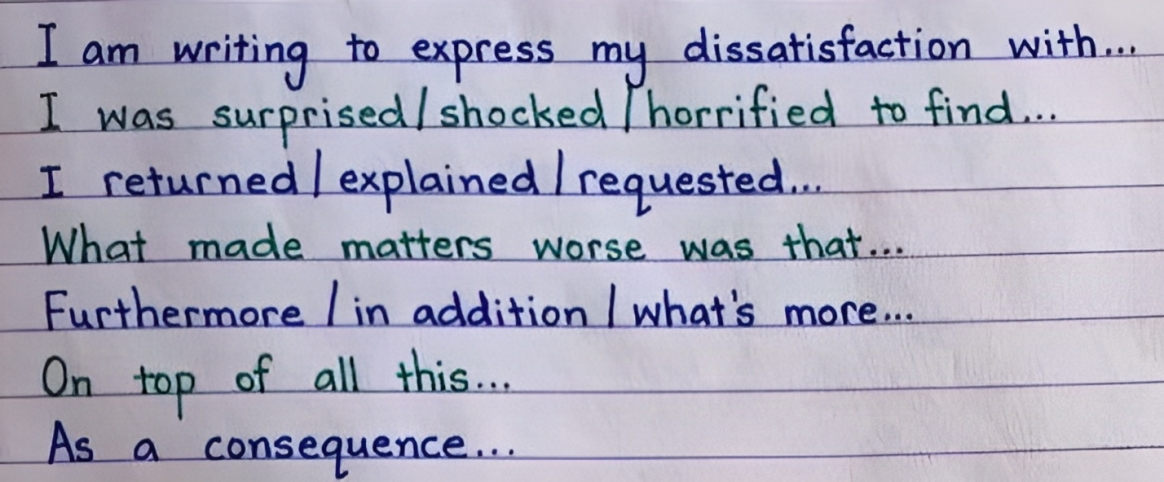 I am writing to express my dissatisfaction with...
I was surprised/shocked/horrified to find...
I returned/explained/requested...
What made matters worse was that...
Furthermore/in addition/what's more...
On top of all this...
As a consequence...